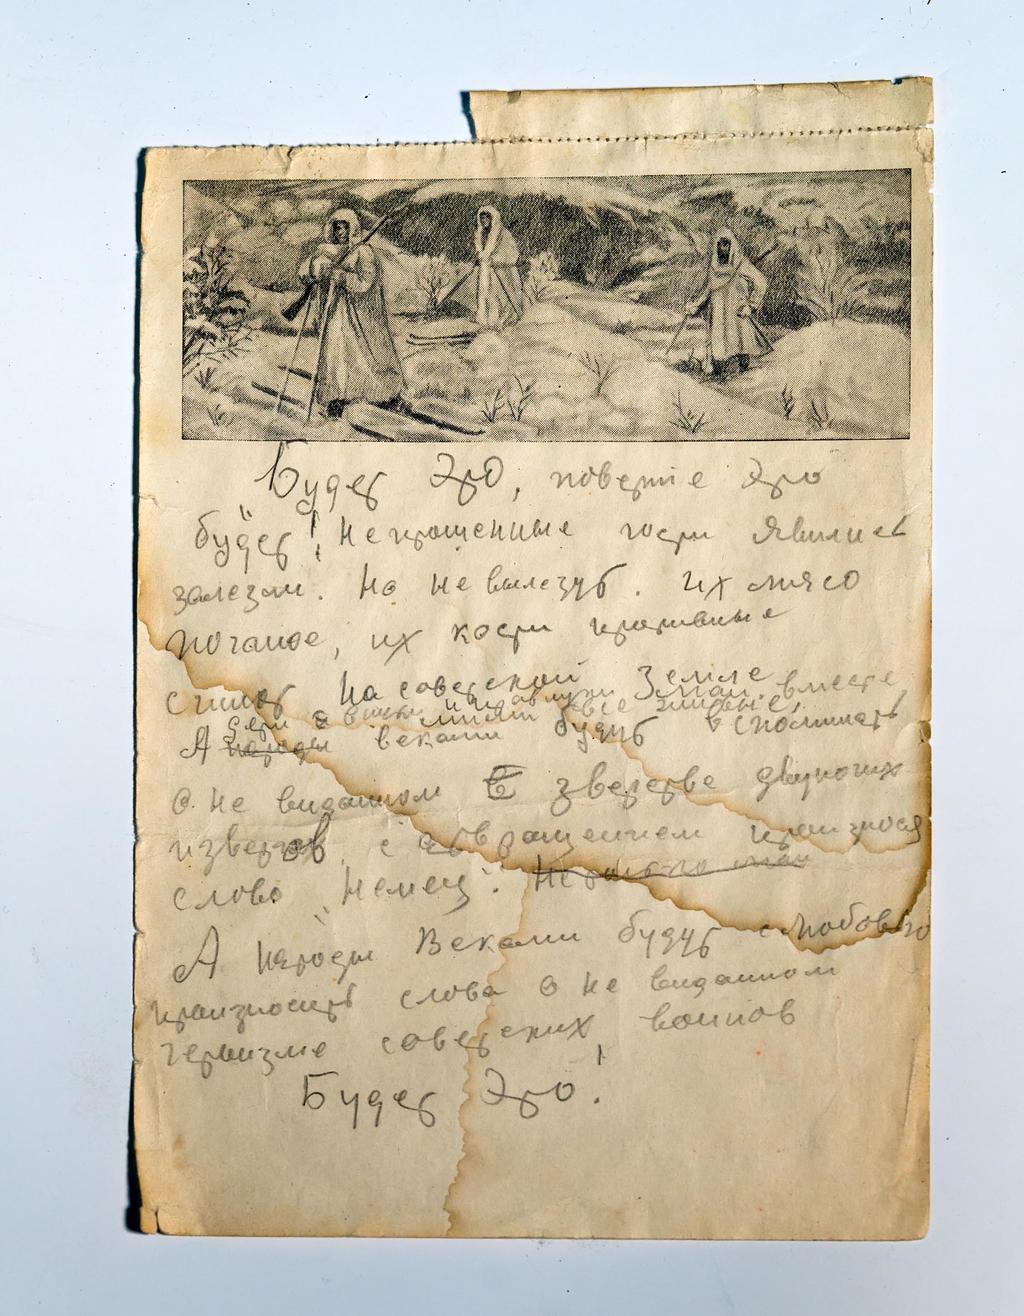 Будет Это, поверте Это
будет! Непрошенные гости явились
залезли. Но не вылезут. их мясо
поганое, их кости противные
сгниют На советской Земле вместе
А народы веками будут вспоминать
О не виданном зверстве двуногих
извергов, с отвращением произнося
слово "Немец".
А народы Веками будут с любовью
произносить слова О не виданном
героизме советских, воинов
Будет Это!